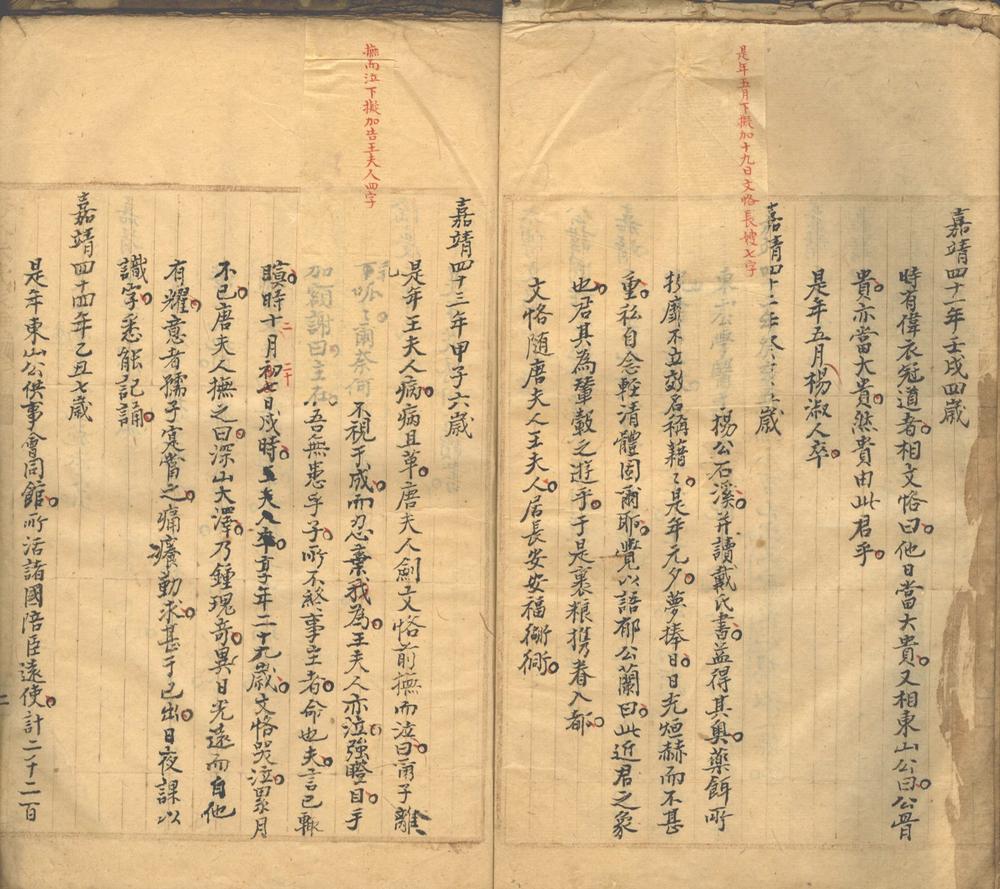 是年五月下擬加十九日文恪長嫂七字
嘉靖四十一年壬戌四歲
時有偉衣冠道者相文恪曰他日當大貴又相東山公曰公骨
貴亦當大貴然貴由此君乎
是年五月楊淑人卒
嘉靖四十二年癸亥五歲
東山公學醫于楊公石溪并讀戴氏書益得其奧藥餌所
投靡不立效名稱藉〻是年元夕夢捧日日光烜赫而不甚
重私自念輕清體固爾耶覺以語郁公蘭曰此近君之象
也君其為輦轂之遊乎于是裹粮携眷入都
文恪随唐夫人王夫人居長安安福衚衕
撫而泣下擬加告王夫人四字
嘉靖四十三年甲子六歲
是年王夫人病病且革唐夫人劍文恪前撫而泣曰甭子離
乳呱〻甭奈何不視于成而忍棄我為王夫人亦泣強瞪目手
加額謝曰主在吾無患乎子所不終事主者命也夫言已輒
瞑時十二月初七二十日戌時王夫人卒享年二十九歲文恪哭泣累月
不已唐夫人撫之曰深山大澤乃鍾瑰奇異日光遠而自他
有耀意者孺子寔當之痛癢勤求甚于已出日夜課以
識字悉能記誦
嘉靖四十四年乙丑七歲
是年東山公供事會同館所活諸國陪臣遠使計二千二百
二